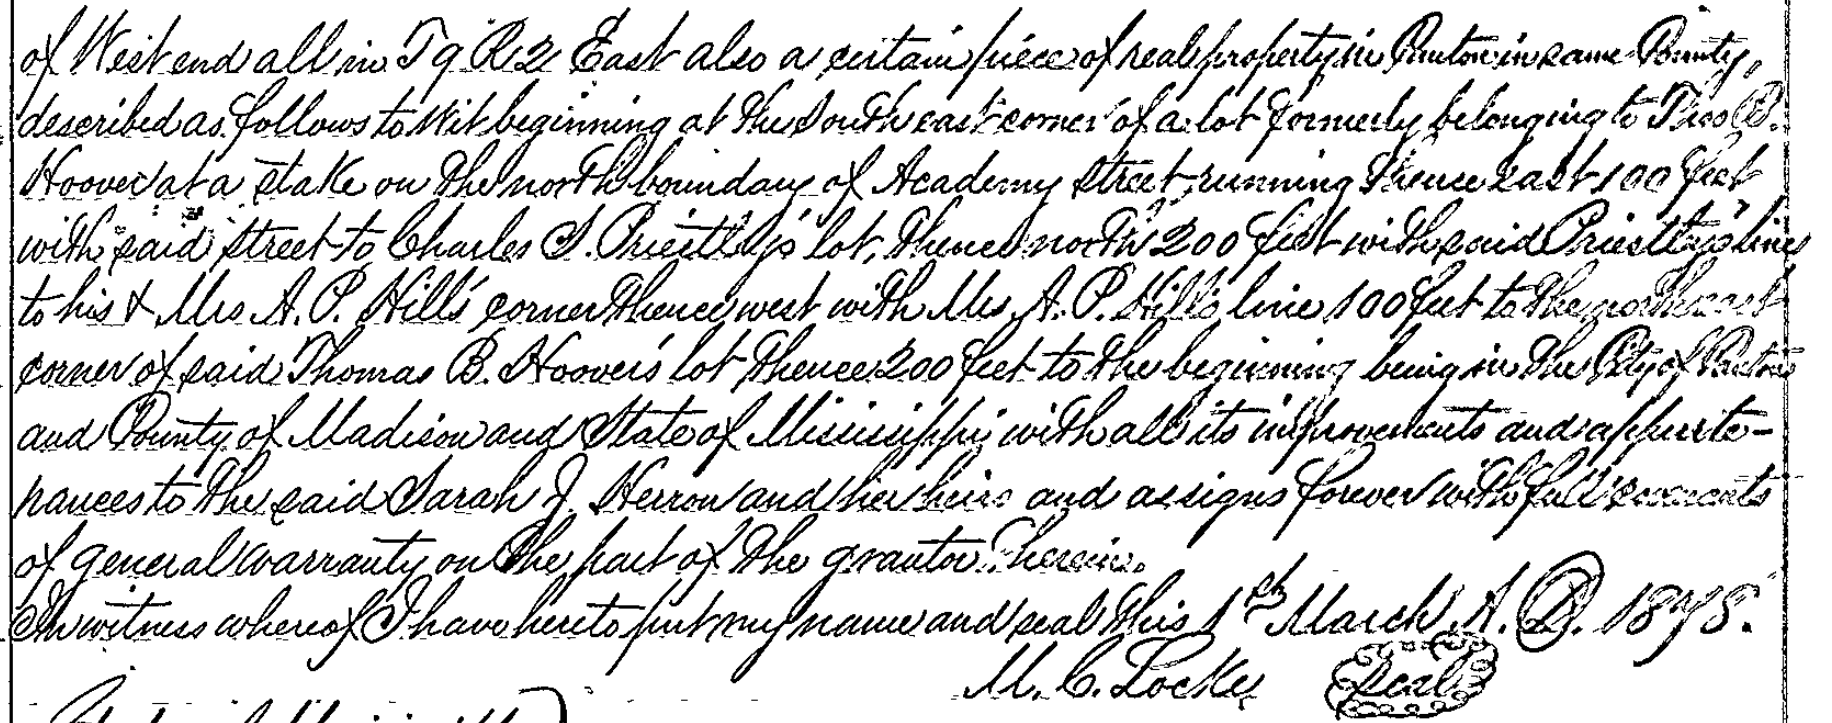 of West end all in T 9 R 2 East also a certain piece of real property in Canton in same County,
described as follows to wit beginning at the South east corner of a lot formerly belonging to Thos B.
Hoover at a stake on the north boundary of Academy Street, running thence east 100 feet
with said street to Charles S. Priestly's lot, thence north 200 feet with said Priestly's line
to his & Mrs A. P. Hill's corner thence west with Mrs A. P. Hill's line 100 feet to the northeast
corner of said Thomas B. Hoover's lot thence 200 feet to the beginning being in the City of Canton
and County of Madison and State of Mississippi with all its improvements and appurte-
nances to the said Sarah J. Herron and her heirs and assigns forever with full covenants
of general warranty on the part of the grantor herein.
In witness whereof I have hereto put my name and seal this 1st March A. D. 1878.
M. C. Locke Seal